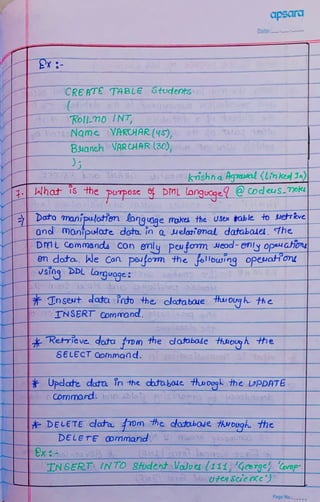 apsara
Date:
Ex :-
CREATE TABLE Students
(
Roll_no INT,
Name VARCHAR (45),
Branch VARCHAR (30),
);
Krishna Agrawal (Linked In)
7. What is the purpose of DML Language? @codeus_
⇒ Data manipulation language makes the user able to retrieve
and manipulate data in a relational databases. The
DML commands can only perform read-only operations
on data. We can perform the following operations
using DDL language:
* Insert data into the database through the
INSERT command.
* Retrieve data from the database through the
SELECT command.
* Update data in the database through the UPDATE
command.
* DELETE data from the database through the
DELETE command.
Ex :-
INSERT INTO Student Values (111, 'George', 'Comp-
uter science')
Page No.